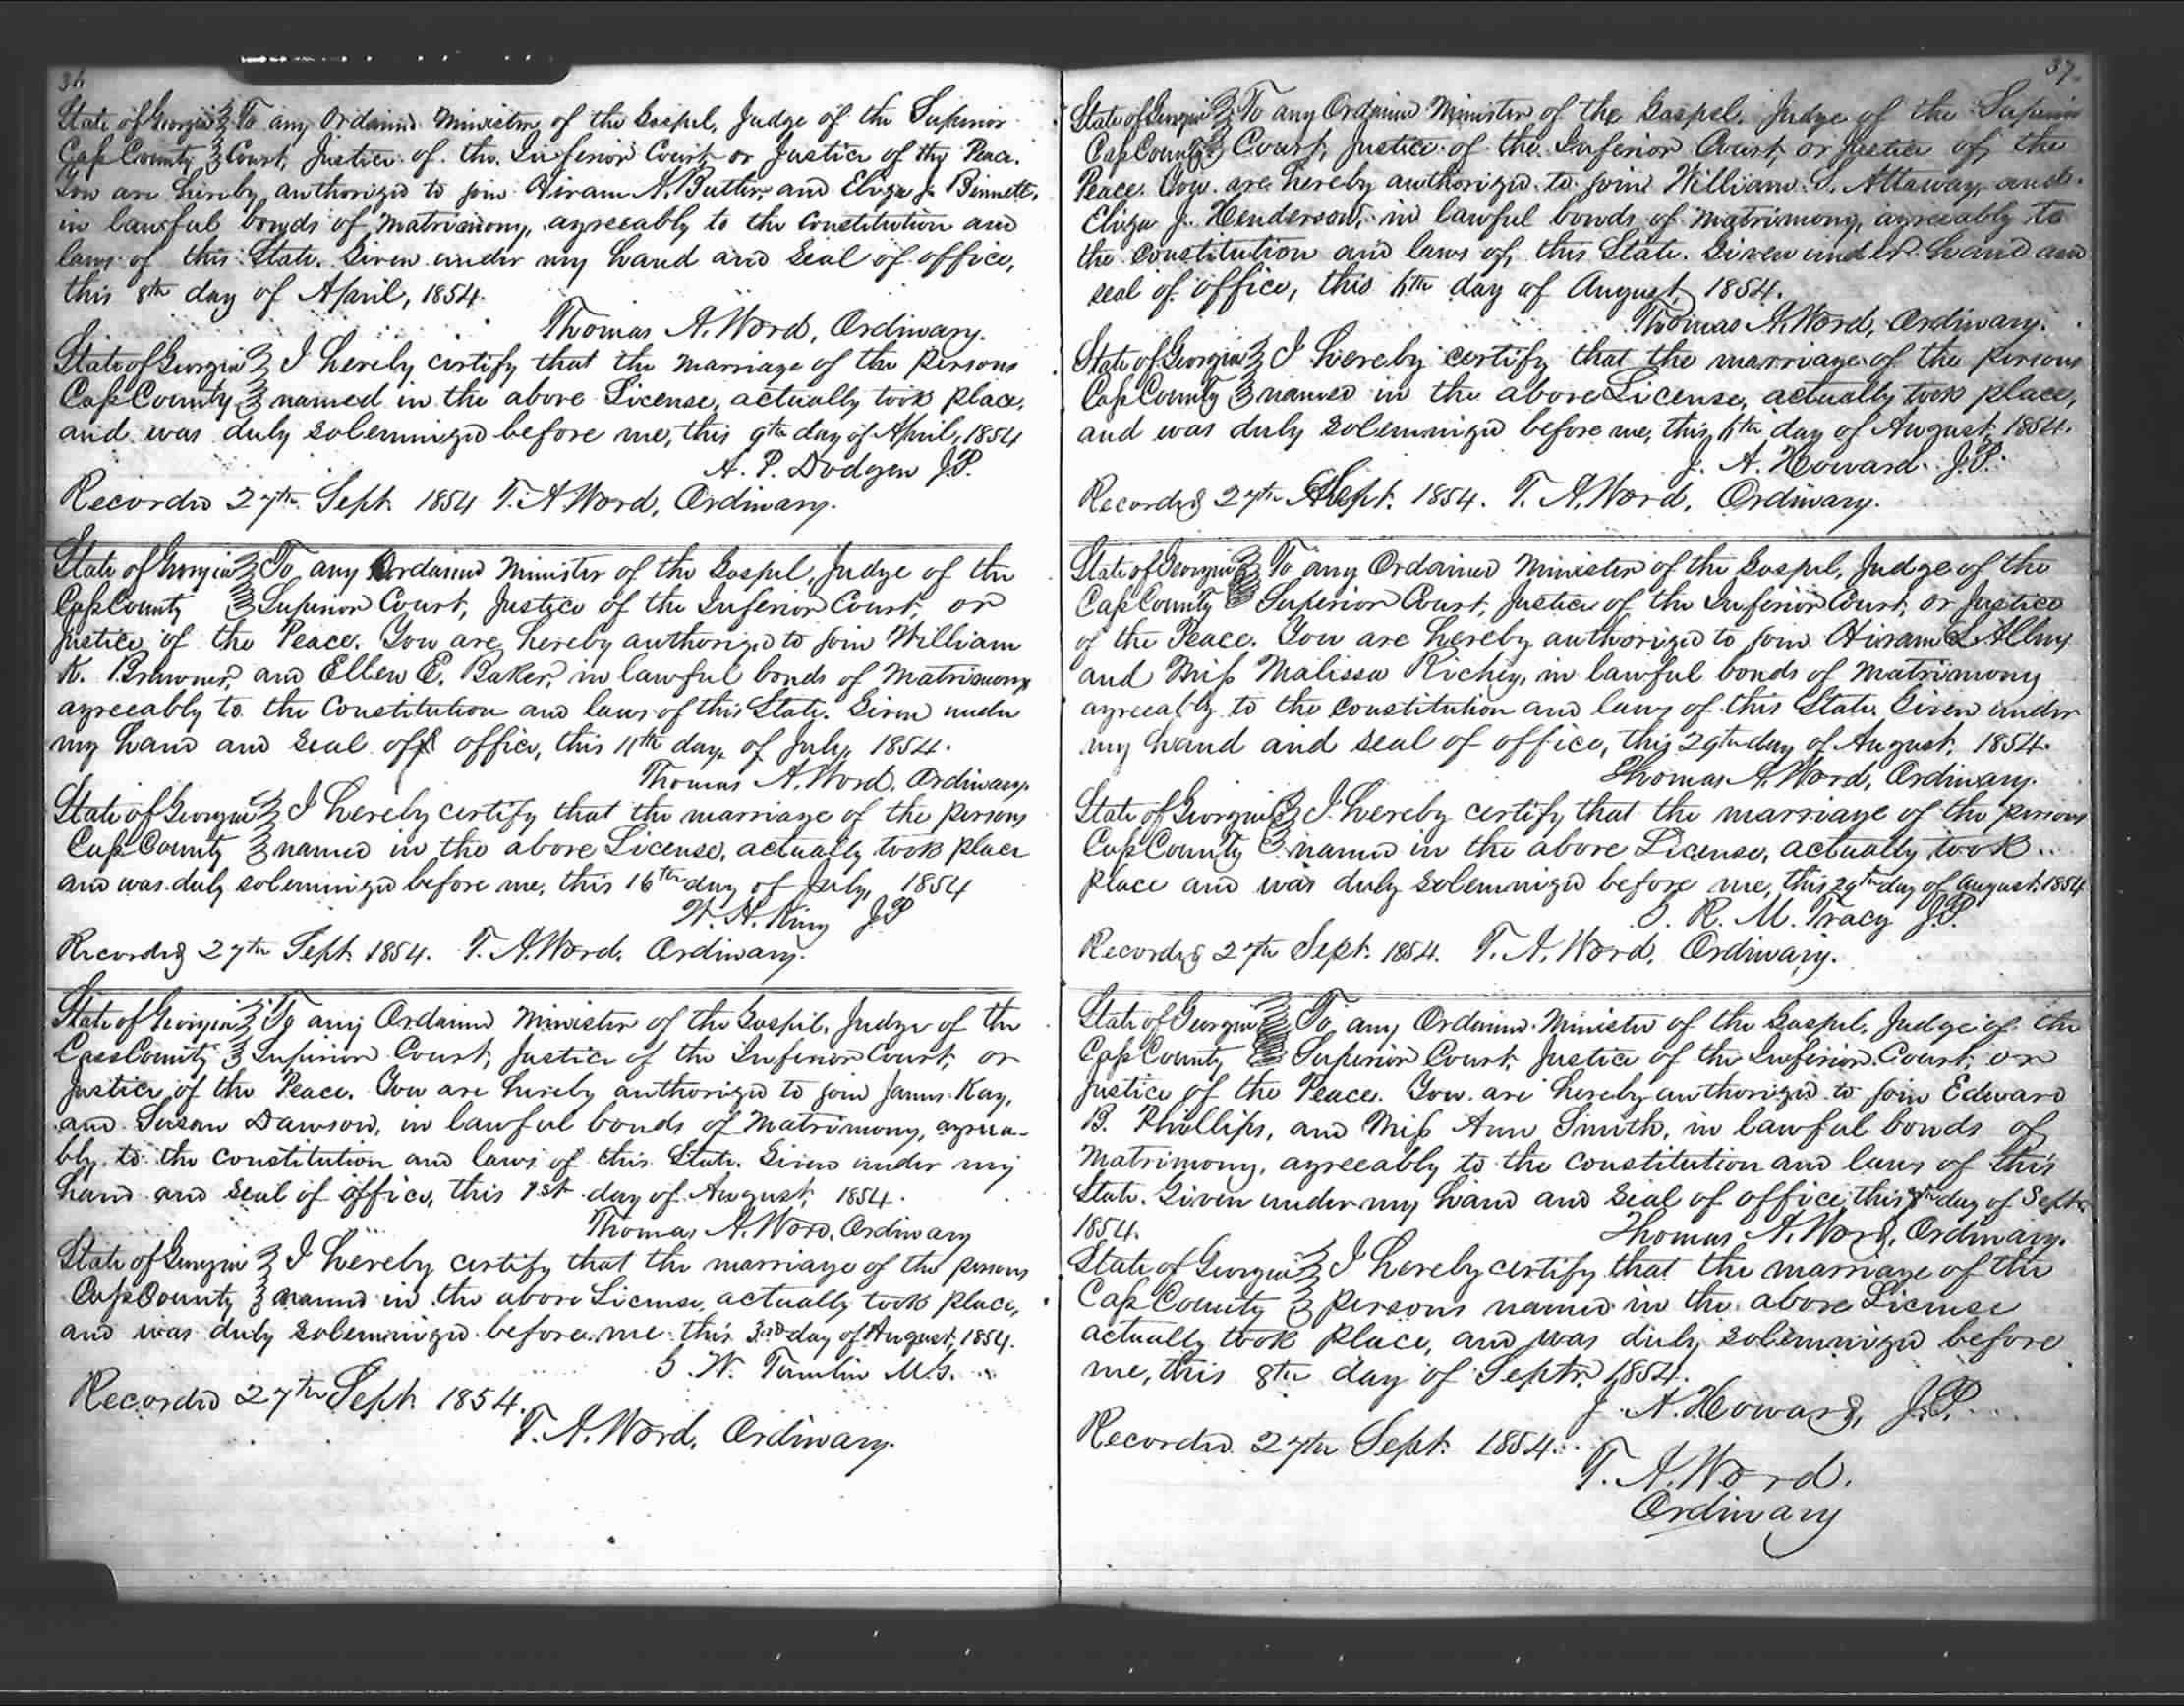 36
State of Georgia } To any Ordained Minister of the Gospel, Judge of the Superior
Cass County } Court, Justice of the Inferior Court or Justice of the Peace.
You are hereby authorized to join Hiram N. Butler, and Eliza J. Binnett,
in lawful bonds of Matrimony, agreeably to the Constitution and
laws of this State. Given under my hand and Seal of office,
this 8th day of April, 1854.
Thomas A. Word, Ordinary.
State of Georgia } I hereby certify that the Marriage of the Persons
Cass County } named in the above License, actually took place,
and was duly solemnized before me, this 9th day of April, 1854
A. P. Dodgen J.P.
Recorded 27th Sept. 1854 T. A. Word, Ordinary.
State of Georgia } To any Ordained Minister of the Gospel, Judge of the
Cass County } Superior Court, Justice of the Inferior Court, or
Justice of the Peace. You are hereby authorized to join William
K. Brawner, and Ellen E. Baker, in lawful bonds of Matrimony
agreeably to the Constitution and laws of this State. Given under
my hand and Seal of office, this 11th day of July, 1854.
Thomas A. Word, Ordinary.
State of Georgia } I hereby certify that the marriage of the persons
Cass County } named in the above License, actually took place
and was duly solemnized before me, this 16th day of July, 1854
W. H. King J.P
Recorded 27th Sept. 1854. T. A. Word, Ordinary.
State of Georgia } To any Ordained Minister of the Gospel, Judge of the
Cass County } Superior Court, Justice of the Inferior Court, or
Justice of the Peace. You are hereby authorized to join James Kay,
and Susan Dawson, in lawful bonds of Matrimony, agreea-
bly to the Constitution and laws of this State. Given under my
hand and seal of office, this 1st day of August, 1854.
Thomas A. Word, Ordinary
State of Georgia } I hereby certify that the marriage of the persons
Cass County } named in the above License, actually took place,
and was duly solemnized before me this 3rd day of August, 1854.
G. W. Tumlin M.G.
Recorded 27th Sept 1854.
T. A. Word, Ordinary.
37
State of Georgia } To any Ordained Minister of the Gospel, Judge of the Superior
Cass County } Court, Justice of the Inferior Court, or Justice of the
Peace. You are hereby authorized to join William S. Attaway, and
Eliza J. Henderson, in lawful bonds of matrimony, agreeably to
the Constitution and laws of this State. Given under hand and
seal of office, this 6th day of August, 1854.
Thomas A. Word, Ordinary.
State of Georgia } I hereby certify that the marriage of the persons
Cass County } named in the above License, actually took place,
and was duly solemnized before me, this 6th day of August, 1854.
J. A. Howard J.P.
Recorded 27th Sept. 1854. T. A. Word, Ordinary.
State of Georgia } To any Ordained Minister of the Gospel, Judge of the
Cass County } Superior Court, Justice of the Inferior Court, or Justice
of the Peace. You are hereby authorized to join Hiram L
and Miss Malissa Richey, in lawful bonds of Matrimony
agreeably to the Constitution and laws of this State. Given under
my hand and seal of office, this 29th day of August, 1854.
Thomas A. Word, Ordinary.
State of Georgia } I hereby certify that the marriage of the persons
Cass County } named in the above License, actually took
place and was duly solemnized before me, this 29th day of August 1854
R. M. Tracy J.P.
Recorded 27th Sept. 1854. T. A. Word, Ordinary.
State of Georgia } To any Ordained Minister of the Gospel, Judge of the
Cass County } Superior Court, Justice of the Inferior Court, or
Justice of the Peace. You are hereby authorized to join Edward
B. Phillips, and Miss Ann Smith, in lawful bonds of
Matrimony, agreeably to the Constitution and laws of this
State. Given under my hand and seal of office, this day of Septr.
1854.
Thomas A. Word, Ordinary.
State of Georgia } I hereby certify that the marriage of the
Cass County } persons named in the above License
actually took place, and was duly solemnized before
me, this 8th day of Septr. 1854.
J. A. Howard, J.P.
Recorded 27th Sept. 1854.
T. A. Word.
Ordinary